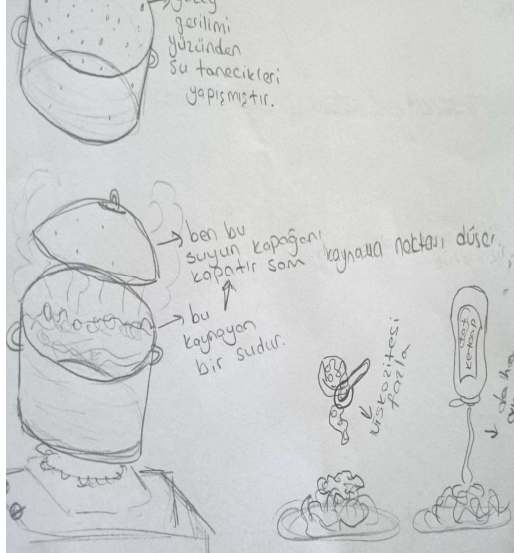 yüzey
gerilimi
yüzünden
su tanecikleri
yapışmıştır.
ben bu
suyun kapağını
kapatır sam kaynama noktası düşer.
bu
kaynayan
bir sudur.
viskozitesi
fazla
ketçap
daha